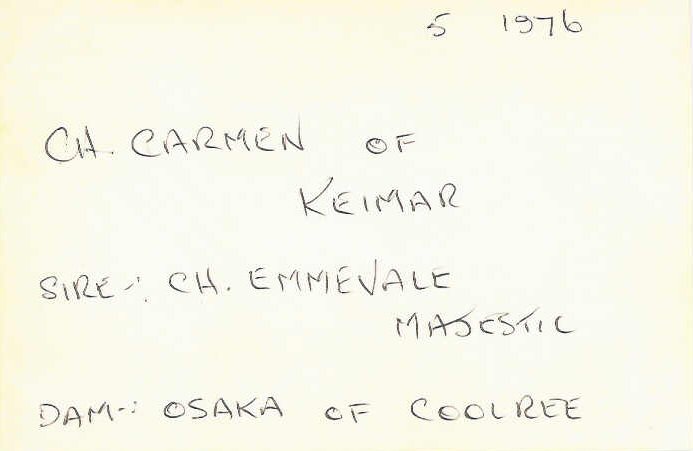 5 1976
CH. CARMEN OF
KEIMAR
SIRE-: CH. EMMEVALE
MAJESTIC
DAM-: OSAKA OF COOLREE